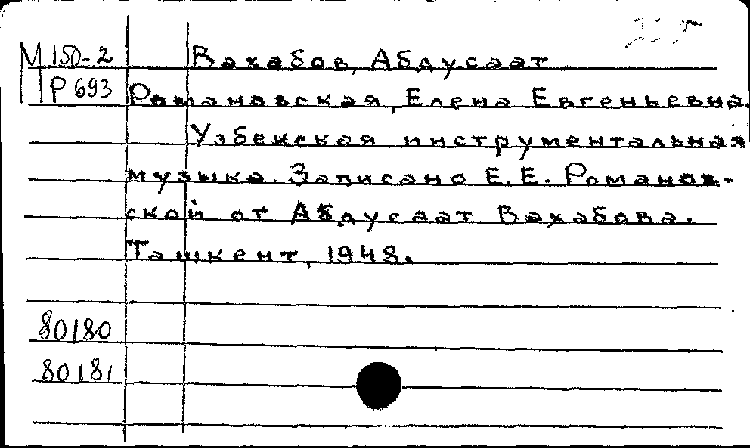 М 150-2 Вахабов, Абдусаат
Р 693 Романовская, Елена Евгеньевна.
Узбекская инструментальная
музыка. Записано Е.Е. Романов-
ской от Абдусаат Вахабова.
Ташкент, 1948.
80180
80181